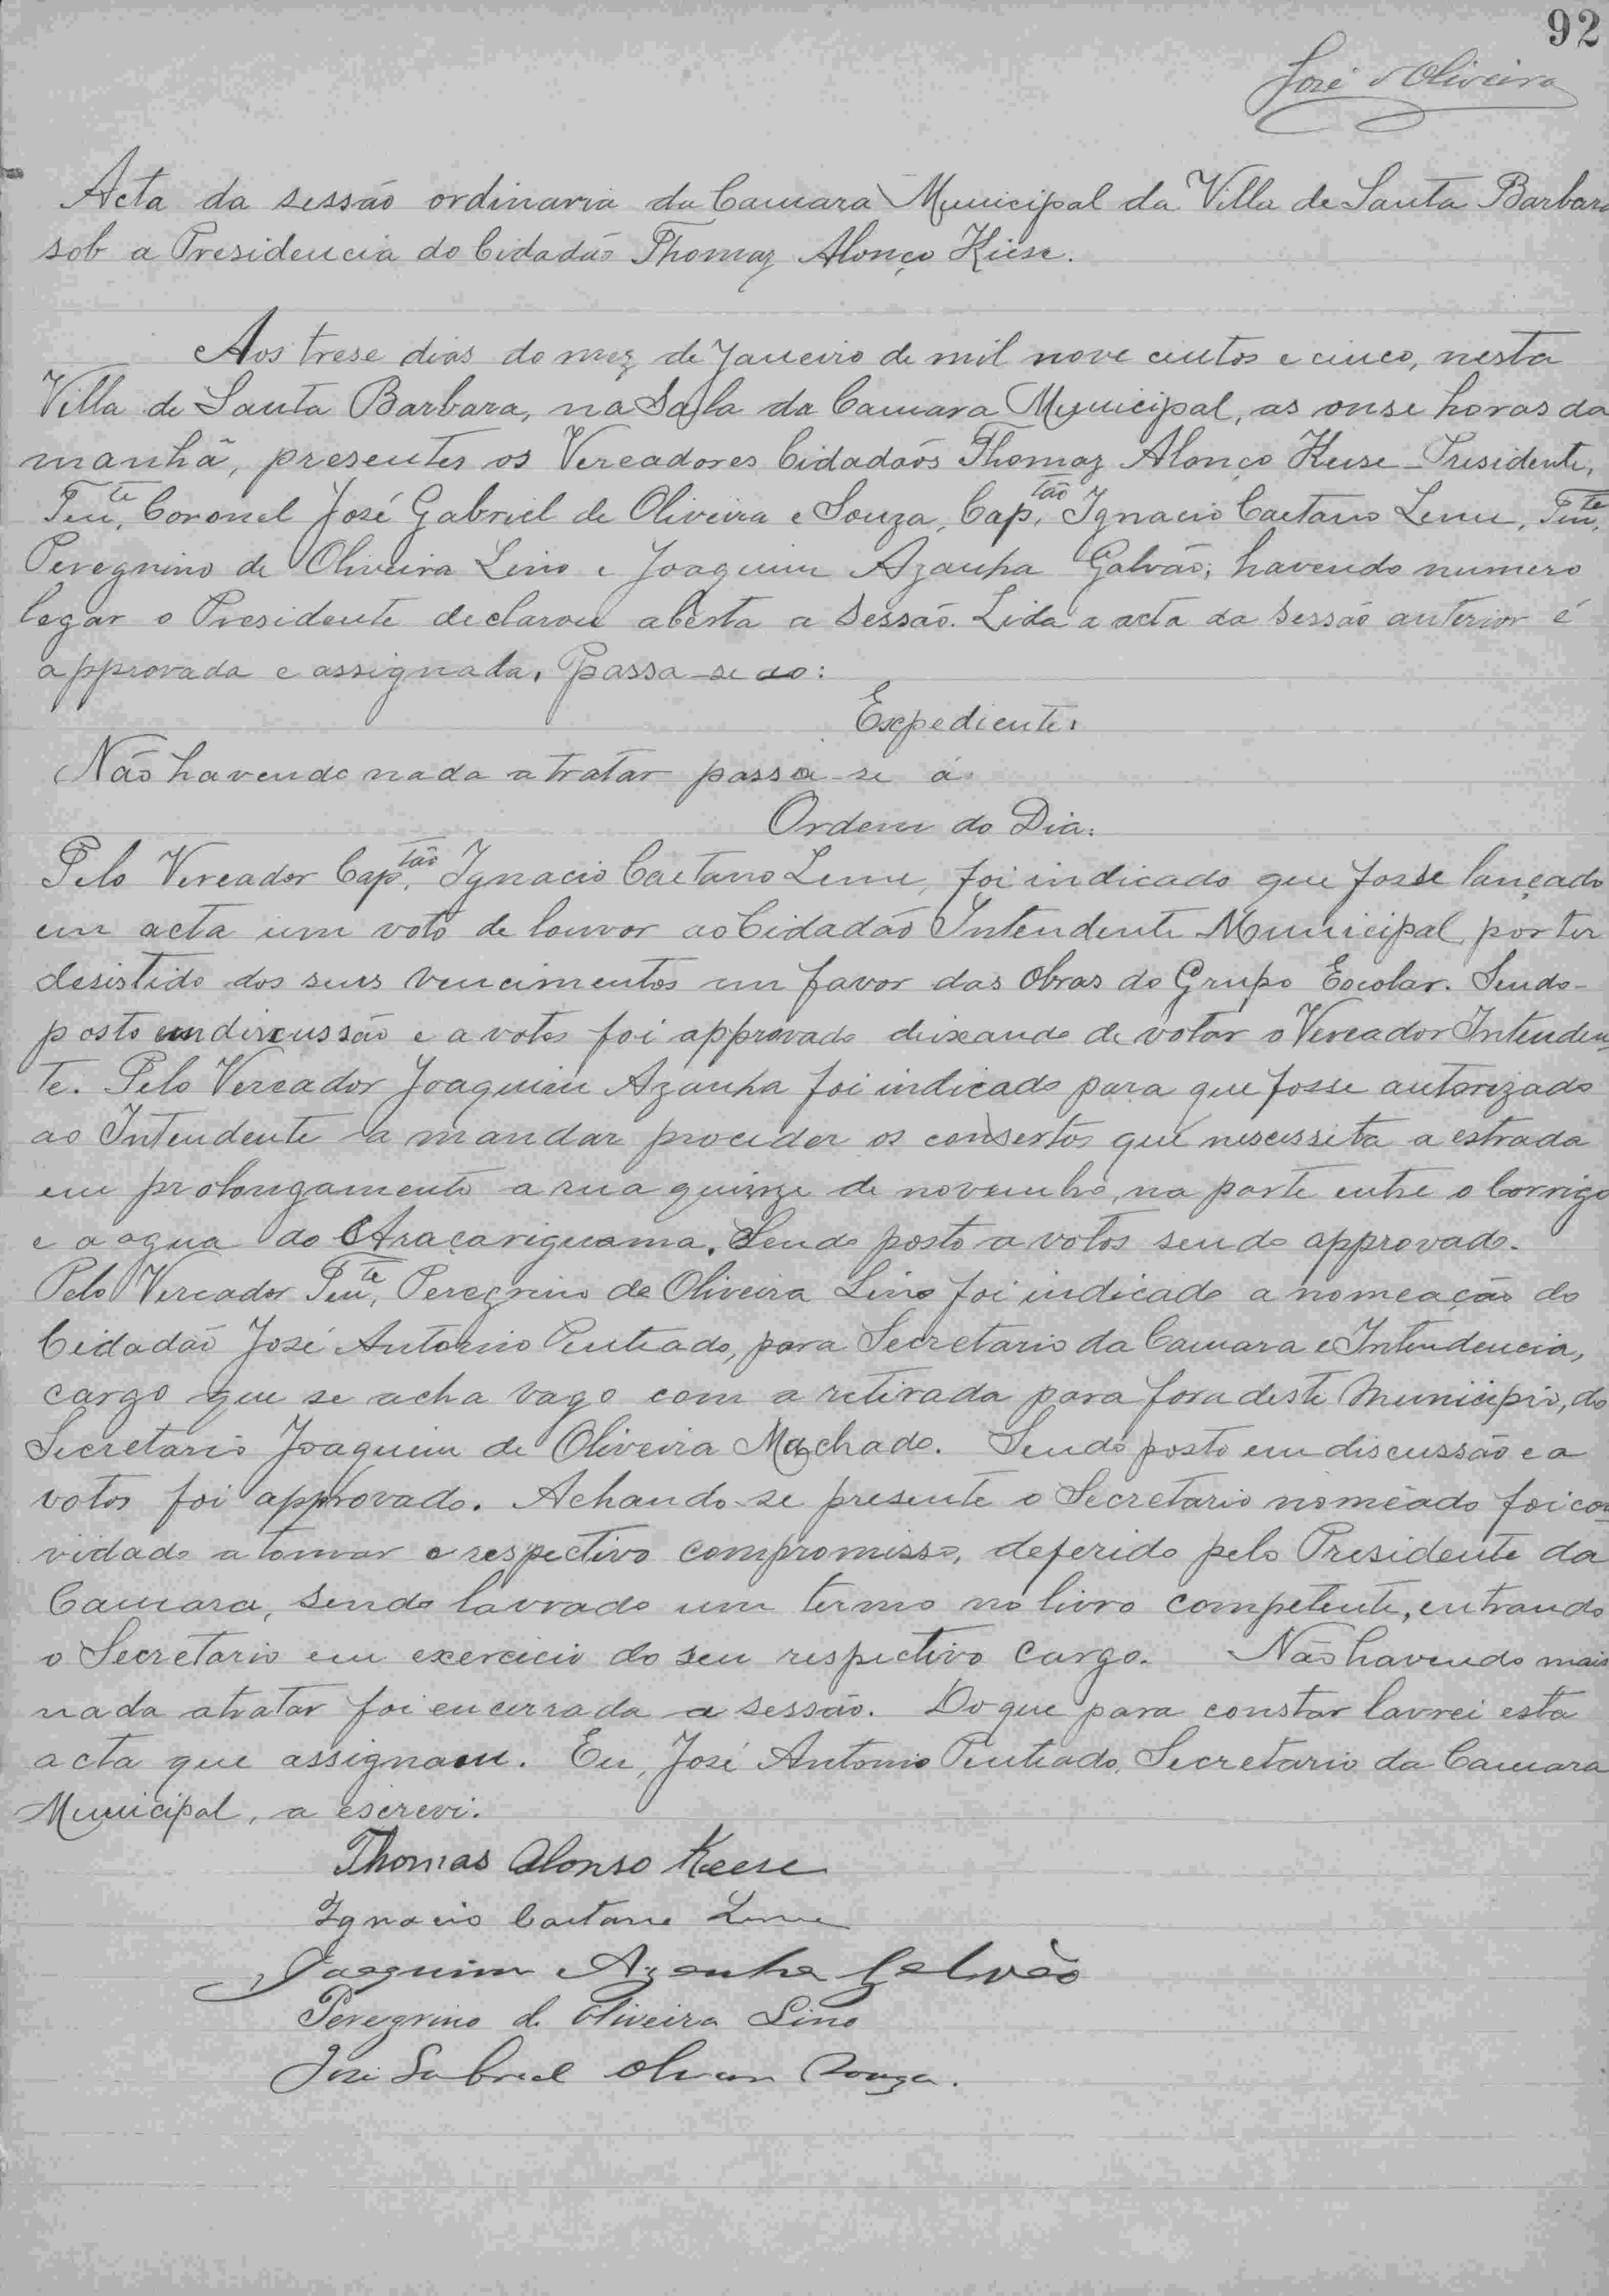 92
José d'Oliveira
Acta da sessão ordinaria da Camara Municipal da Villa de Santa Barbara
sob a Presidencia do Cidadão Thomaz Alonço Kiese.
Aos trese dias do mez de Janeiro de mil nove centos e cinco, nesta
Villa de Santa Barbara, na Salla da Camara Municipal, as onse horas da
manhã, presentes os Vereadores Cidadãos Thomaz Alonço Keese - Presidente,
Tente, Coronel José Gabriel de Oliveira e Souza, Cap.tão Ignacio Caetano Leme, Tente,
Peregnino de Oliveira Lino e Joaquim Azanha Galvão; havendo numero
legar o Presidente declarou aberta a Sessão. Lida a acta da Sessão anterior é
approvada e assignada. Passa-se ao:
Expediente.
Não havendo nada a tratar passa-se á
Ordem do Dia.
Pelo Vereador Cap.tão Ignacio Caetano Leme, foi indicado que fosse lançado
em acta um voto de louvor ao Cidadão Intendente Municipal, por ter
desistido dos seus vencimentos em favor das Obras do Grupo Escolar. Sendo
posto em discussão e a votos foi approvado deixando de votar o Vereador Intenden-
te. Pelo Vereador Joaquim Azanha foi indicado para que fosse autorizado
ao Intendente a mandar proceder os consertos que nescessita a estrada
em prolongamento a rua quinze de novembro, na parte entre o Corrigo
e a agua do Araçariguama. Sendo posto a votos sendo approvado.
Pelo Vereador Tente, Peregrino de Oliveira Lino foi indicado a nomeação do
Cidadão José Antonio Penteado, para Secretario da Camara e Intendencia,
cargo que se acha vago com a retirada para fora deste Municipio, do
Secretario Joaquim de Oliveira Machado. Sendo posto em discussão e a
votos foi approvado. Achando-se presente o Secretario nomeado foi con-
vidado a tomar o respectivo compromisso, deferido pelo Presidente da
Camara, sendo lavrado um termo no livro competente, entrando
o Secretario em exercicio do seu respectivo cargo. Não havendo mais
nada a tratar foi encerrada a sessão. Do que para constar lavrei esta
acta que assignam. Eu, José Antonio Penteado, Secretario da Camara
Municipal, a escrevi.
Thomas Alonso Keese
Ignacio Caetano Leme
Joaquim Azanha Galvão
Peregrino de Oliveira Lino
José Gabriel Oliveira Souza.